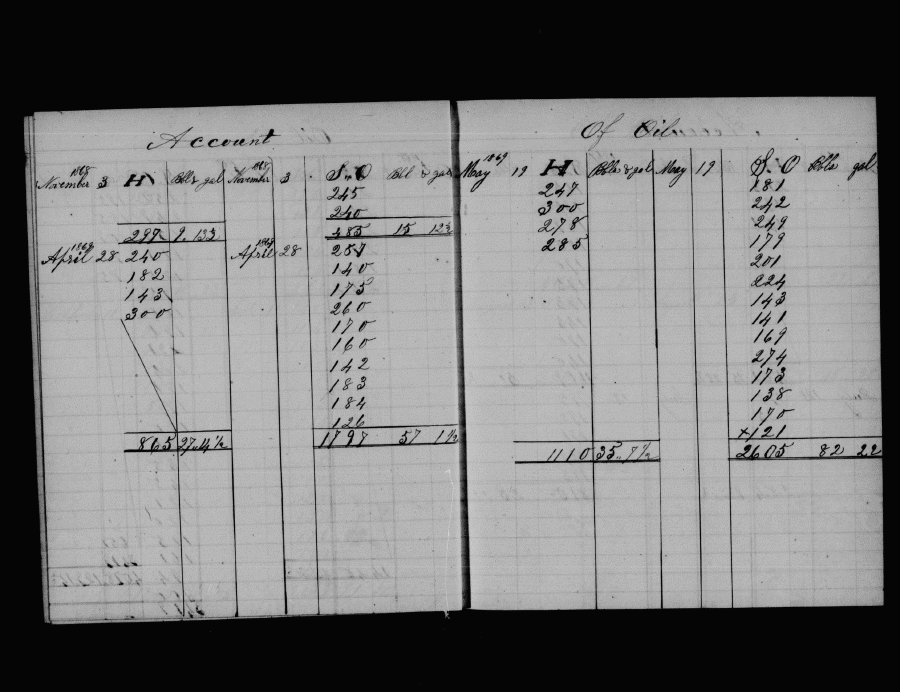 Account Of Oil
1868 November 3 H Bbls gal 1868 November 3 S. O Bbl & gal
245
240
297 9. 13½ 485 15 12½
1869 April 28 240 1869 April 28 257
182 140
143 175
300 260
170
160
142
183
184
126
865 27 14½ 1797 57 1½
1869 May 19 H Bbls & gal May 19 S. O Bbls gal
247 181
300 242
278 249
285 179
201
224
143
141
169
274
173
138
170
+121
1110 35 .. 7½ 2605 82 22